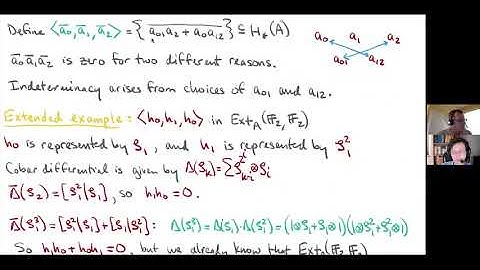 Define ⟨a̅₀, a̅₁, a̅₂⟩ = { \overline{a₀₁a₂ + a₀a₁₂} } ⊆ H_*(A)
a₀ a₁ a₂
a₀₁ a₁₂
a̅₀a̅₁a̅₂ is zero for two different reasons.
Indeterminacy arises from choices of a₀₁ and a₁₂.
Extended example: ⟨h₀, h₁, h₀⟩ in Ext_A(𝔽₂, 𝔽₂)
h₀ is represented by ζ₁, and h₁ is represented by ζ₁²
Cobar differential is given by Δ(ζ_k) = Σ ζ_{k-i}^{2^i} ⊗ ζ_i
Δ̅(ζ₂) = [ζ₁²|ζ₁], so h₁h₀ = 0.
Δ̅(ζ₁³) = [ζ₁²|ζ₁] + [ζ₁|ζ₁²]: Δ(ζ₁³) = Δ(ζ₁)·Δ(ζ₁²) = (1⊗ζ₁+ζ₁⊗1)(1⊗ζ₁²+ζ₁²⊗1)
So h₁h₀ + h₀h₁ = 0, but we already know that Ext_A(𝔽₂, 𝔽₂)